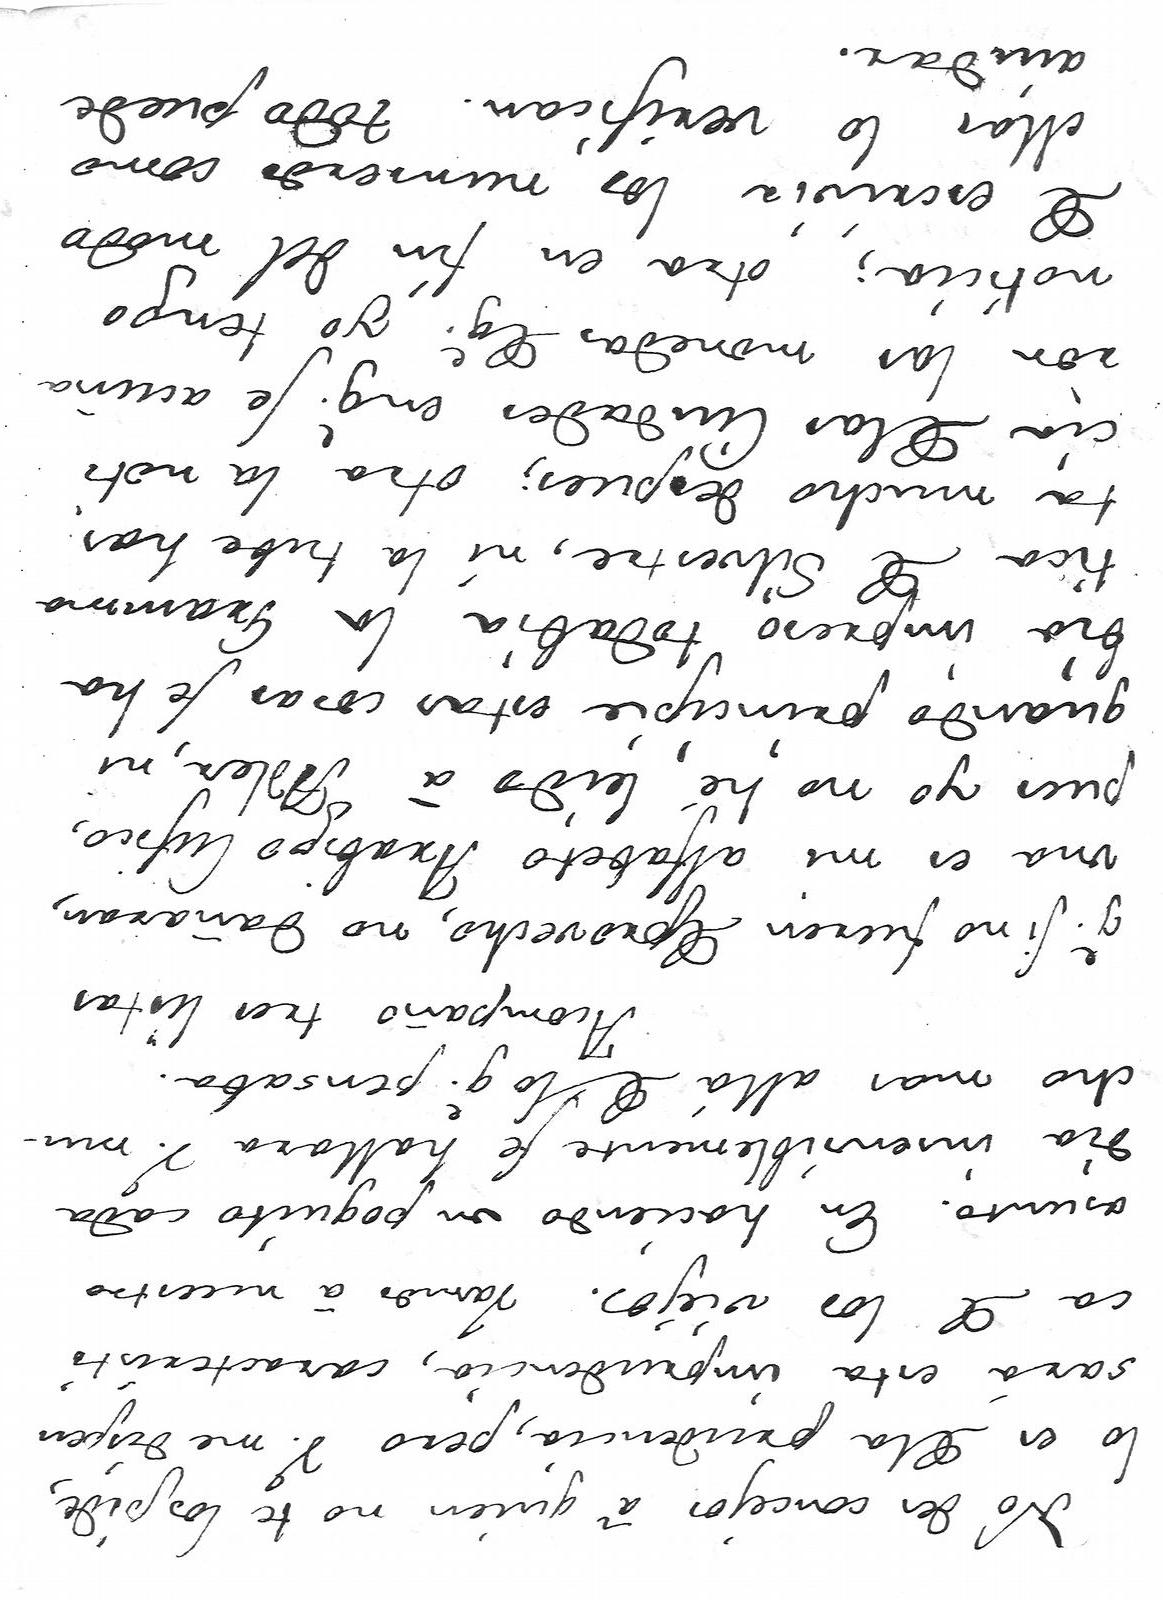 No des concejos à quien no te los pide,
lo es de la prudencia, pero V. me dispen
sará esta imprudencia, caracteristi
ca de los viejos. Vamos à nuestro
asunto. En haciendo un poquito cada
dia insensiblemente se hallara V. mu-
cho mas allá de lo q.e pensaba.
Acompaño tres listas
q.e si no fueren de provecho, no dañaran,
una es mi alfabeto Arabigo Cufico,
pues yo no hé leido à Adler, ni
quando principie estas cosas se ha
bia impreso todabia la Gramma
tica de Silvestre, ni la tube has
ta mucho despues; otra la noti
cia de las Ciudades en q.e se acuña
ron las monedas de q.e yo tengo
noticia; otra en fin del modo
de escrivir los numeros como
ellos lo verifican. Todo puede
aiudar.